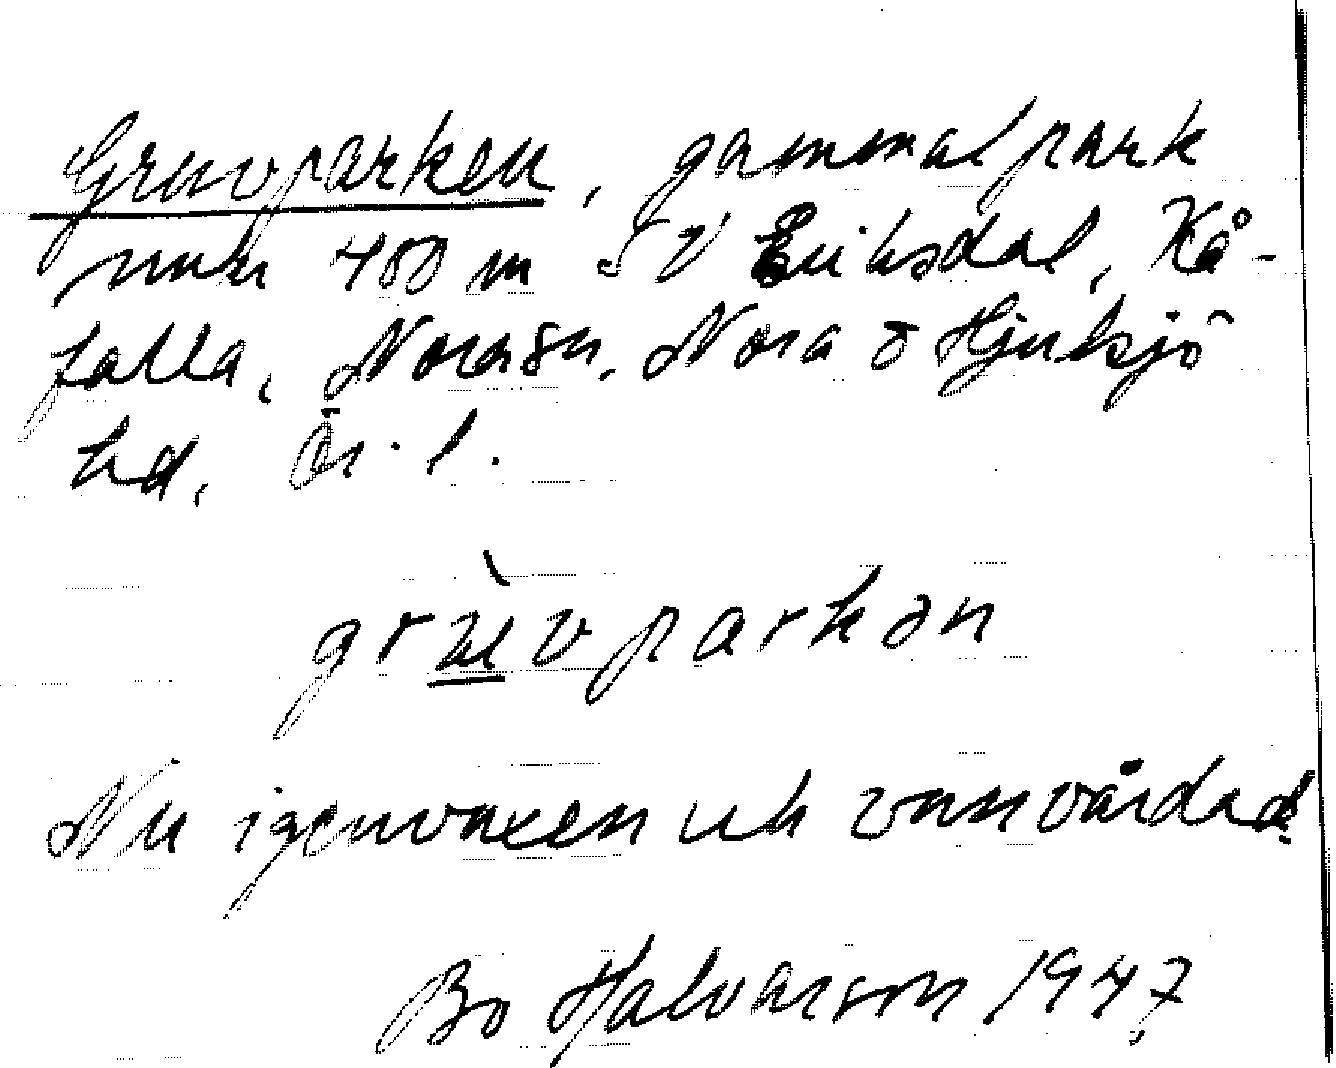 Gruvparken, gammal park
400 m SV Eriksdal, Kå-
falla, Nora sn, Nora o Hjulsjö
hd, Ör. l.
parkən
Nu igenvuxen och vanvårdad.
Bo Halvarson 1947